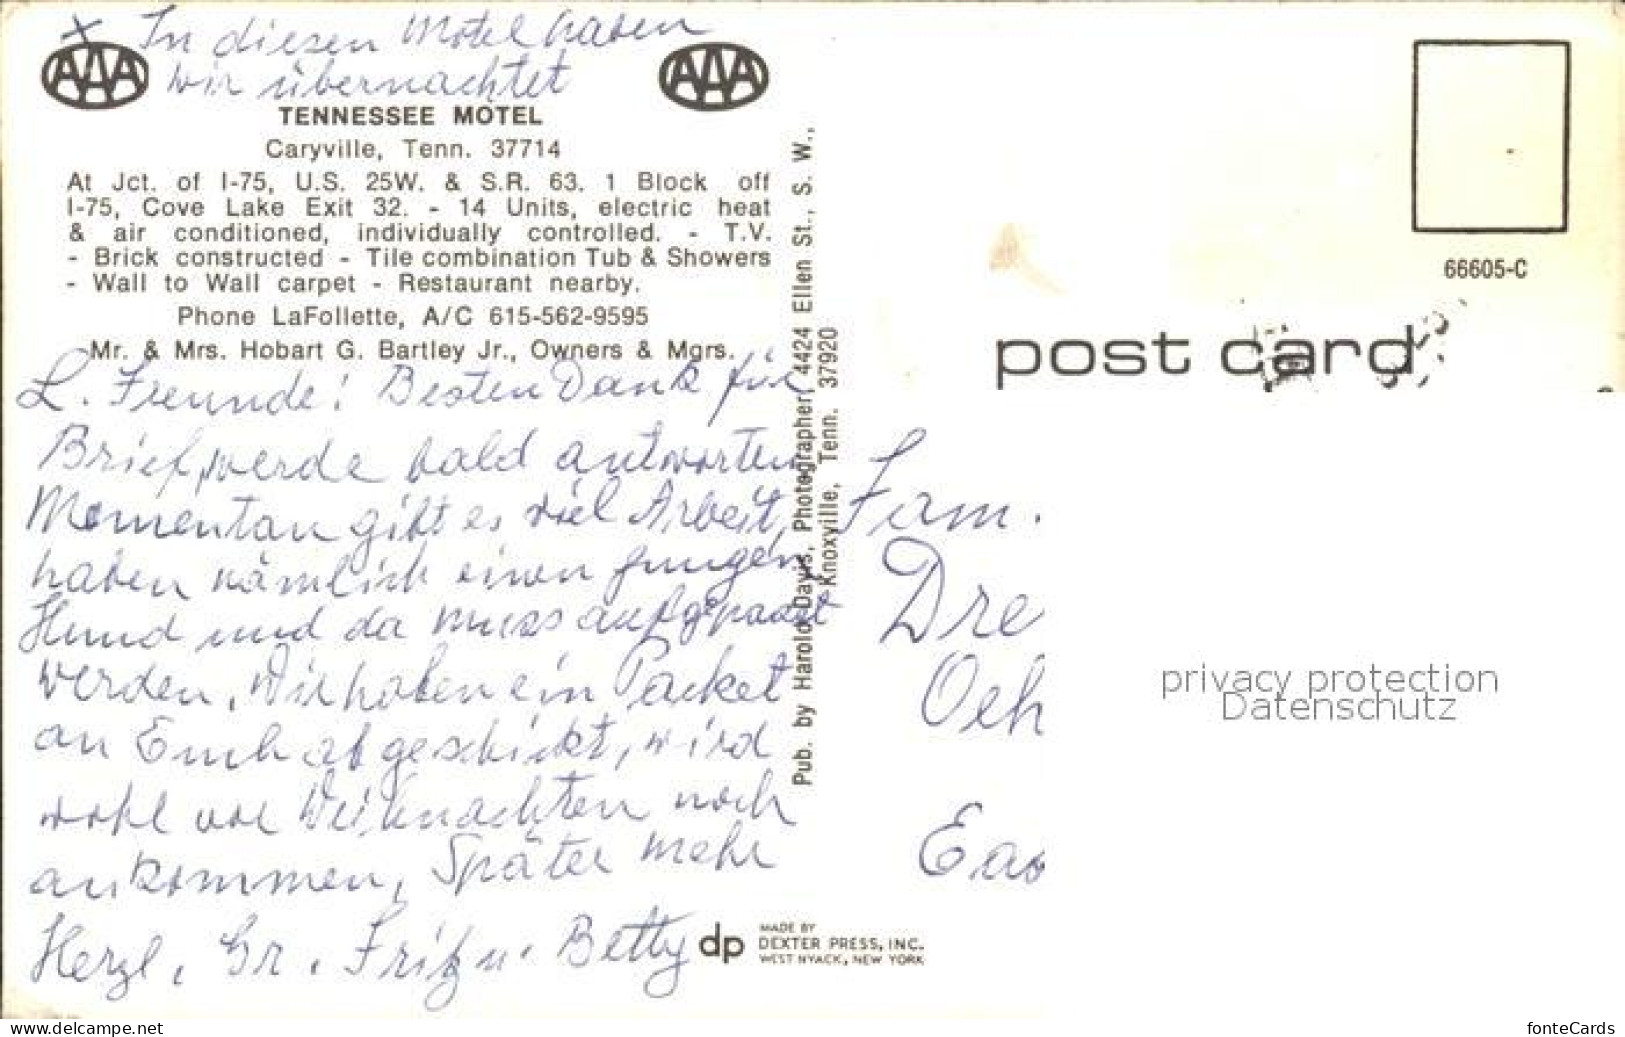 x In diesen Motel haben
wir übernachtet
AAA
AAA
TENNESSEE MOTEL
Caryville, Tenn. 37714
At Jct. of I-75, U.S. 25W. & S.R. 63. 1 Block off
I-75, Cove Lake Exit 32. - 14 Units, electric heat
& air conditioned, individually controlled. - T.V.
- Brick constructed - Tile combination Tub & Showers
- Wall to Wall carpet - Restaurant nearby.
Phone LaFollette, A/C 615-562-9595
Mr. & Mrs. Hobart G. Bartley Jr., Owners & Mgrs.
L. Freunde! Besten Dank für
Brief, werde bald antworten
Momentan gibt es viel Arbeit,
haben nämlich einen jungen
Hund und da muss aufgepasst
werden. Wir haben ein Packet
an Euch abgeschickt, wird
wohl vor Weihnachten noch
ankommen, Später mehr
Herzl. Gr. Fritz u. Betty
Pub. by Harold Davis, Photographer, 4424 Ellen St., S. W.,
Knoxville, Tenn. 37920
dp MADE BY
DEXTER PRESS, INC.
WEST NYACK, NEW YORK
66605-C
post card
Fam.
Dre
Oeh
privacy protection
Datenschutz
Eas
www.delcampe.net
fonteCards